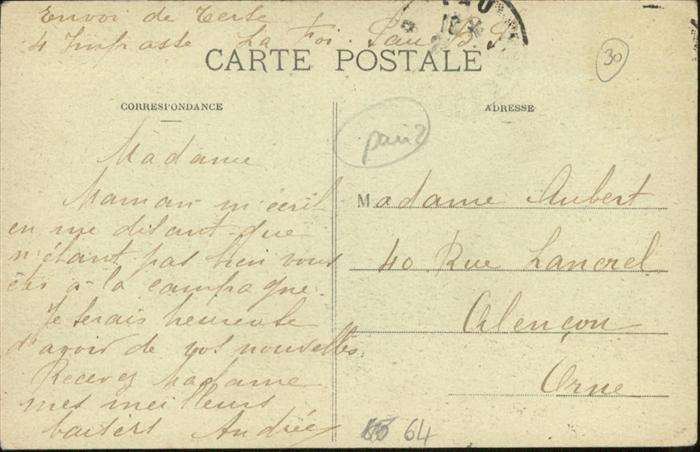 Envoi de Terte
4 Impasse La Foi. Pau B. P.
CARTE POSTALE
30
CORRESPONDANCE
ADRESSE
Madame
Maman m'écrit
en me disant que
n'étant pas bien vous
éts à la campagne.
Je serais heureuse
d'avoir de vos nouvelles.
Recevez Madame
mes meilleurs
baisers Andrée
Madame Aubert
40 Rue Lancrel
Alençon
Orne
64